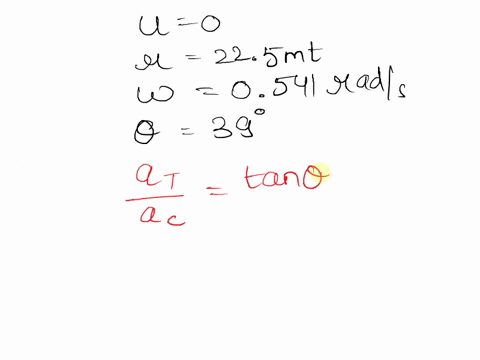 u = 0
r = 22.5mt
ω = 0.541 rad/s
θ = 39°
a_T / a_c = tanθ